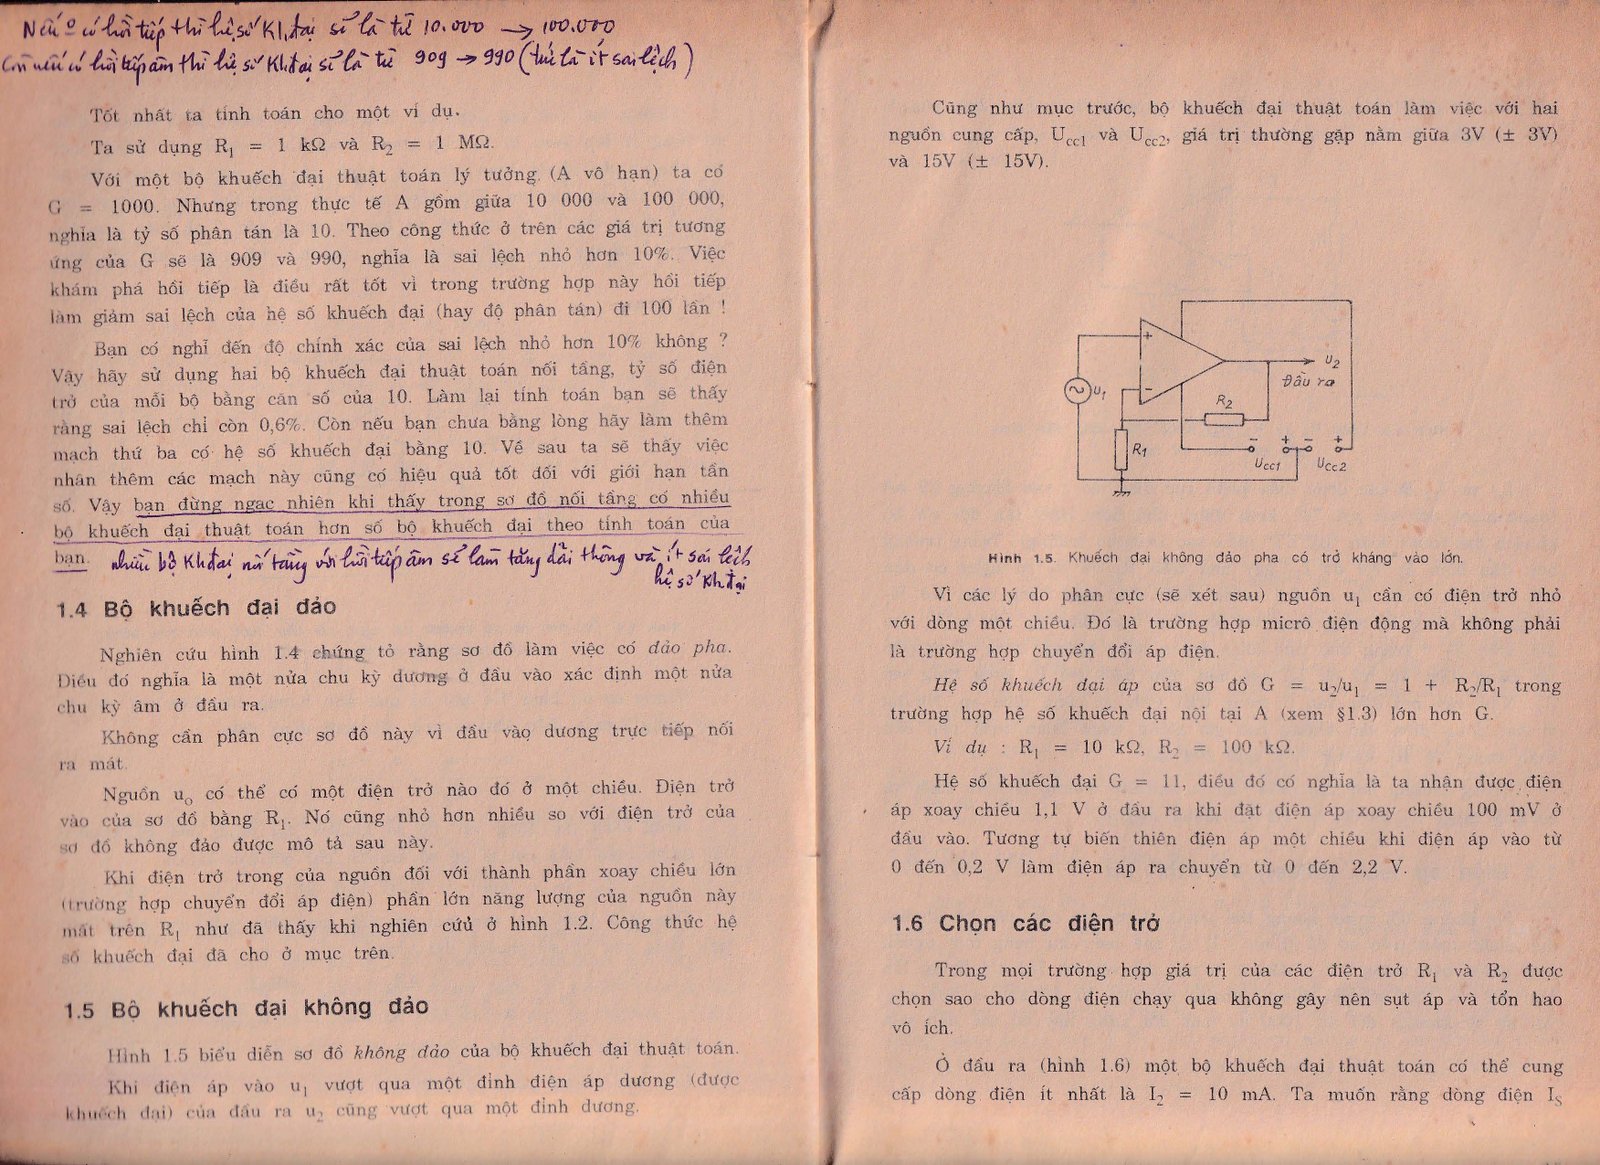 Nếu 0 có hồi tiếp thì hệ số Kh.đại sẽ là từ 10.000 → 100.000
Còn nếu có hồi tiếp âm thì hệ số Kh.đại sẽ là từ 909 → 990 (tức là ít sai lệch)
Tốt nhất ta tính toán cho một ví dụ.
Ta sử dụng R₁ = 1 kΩ và R₂ = 1 MΩ.
Với một bộ khuếch đại thuật toán lý tưởng (A vô hạn) ta có
G = 1000. Nhưng trong thực tế A gồm giữa 10 000 và 100 000,
nghĩa là tỷ số phân tán là 10. Theo công thức ở trên các giá trị tương
ứng của G sẽ là 909 và 990, nghĩa là sai lệch nhỏ hơn 10%. Việc
khám phá hồi tiếp là điều rất tốt vì trong trường hợp này hồi tiếp
làm giảm sai lệch của hệ số khuếch đại (hay độ phân tán) đi 100 lần !
Bạn có nghĩ đến độ chính xác của sai lệch nhỏ hơn 10% không ?
Vậy hãy sử dụng hai bộ khuếch đại thuật toán nối tầng, tỷ số điện
trở của mỗi bộ bằng căn số của 10. Làm lại tính toán bạn sẽ thấy
rằng sai lệch chỉ còn 0,6%. Còn nếu bạn chưa bằng lòng hãy làm thêm
mạch thứ ba có hệ số khuếch đại bằng 10. Về sau ta sẽ thấy việc
nhân thêm các mạch này cũng có hiệu quả tốt đối với giới hạn tần
số. Vậy bạn đừng ngạc nhiên khi thấy trong sơ đồ nối tầng có nhiều
bộ khuếch đại thuật toán hơn số bộ khuếch đại theo tính toán của
bạn. nhiều bộ Kh.đại nối tầng với hồi tiếp âm sẽ làm tăng dải thông và ít sai lệch
hệ số Kh.đại
1.4 Bộ khuếch đại đảo
Nghiên cứu hình 1.4 chứng tỏ rằng sơ đồ làm việc có đảo pha.
Điều đó nghĩa là một nửa chu kỳ dương ở đầu vào xác định một nửa
chu kỳ âm ở đầu ra.
Không cần phân cực sơ đồ này vì đầu vào dương trực tiếp nối
ra mát.
Nguồn u₀ có thể có một điện trở nào đó ở một chiều. Điện trở
vào của sơ đồ bằng R₁. Nó cũng nhỏ hơn nhiều so với điện trở của
sơ đồ không đảo được mô tả sau này.
Khi điện trở trong của nguồn đối với thành phần xoay chiều lớn
(trường hợp chuyển đổi áp điện) phần lớn năng lượng của nguồn này
mất trên R₁ như đã thấy khi nghiên cứu ở hình 1.2. Công thức hệ
số khuếch đại đã cho ở mục trên.
1.5 Bộ khuếch đại không đảo
Hình 1.5 biểu diễn sơ đồ không đảo của bộ khuếch đại thuật toán.
Khi điện áp vào u₁ vượt qua một đỉnh điện áp dương (được
khuếch đại) của đầu ra u₂ cũng vượt qua một đỉnh dương.
Cũng như mục trước, bộ khuếch đại thuật toán làm việc với hai
nguồn cung cấp, Ucc1 và Ucc2, giá trị thường gặp nằm giữa 3V (± 3V)
và 15V (± 15V).
+
U₂
Đầu ra
U₁
−
R₂
R₁
− + − +
Ucc1 Ucc2
Hình 1.5. Khuếch đại không đảo pha có trở kháng vào lớn.
Vì các lý do phân cực (sẽ xét sau) nguồn u₁ cần có điện trở nhỏ
với dòng một chiều. Đó là trường hợp micrô điện động mà không phải
là trường hợp chuyển đổi áp điện.
Hệ số khuếch đại áp của sơ đồ G = u₂/u₁ = 1 + R₂/R₁ trong
trường hợp hệ số khuếch đại nội tại A (xem §1.3) lớn hơn G.
Ví dụ : R₁ = 10 kΩ, R₂ = 100 kΩ.
Hệ số khuếch đại G = 11, điều đó có nghĩa là ta nhận được điện
áp xoay chiều 1,1 V ở đầu ra khi đặt điện áp xoay chiều 100 mV ở
đầu vào. Tương tự biến thiên điện áp một chiều khi điện áp vào từ
0 đến 0,2 V làm điện áp ra chuyển từ 0 đến 2,2 V.
1.6 Chọn các điện trở
Trong mọi trường hợp giá trị của các điện trở R₁ và R₂ được
chọn sao cho dòng điện chạy qua không gây nên sụt áp và tổn hao
vô ích.
Ở đầu ra (hình 1.6) một bộ khuếch đại thuật toán có thể cung
cấp dòng điện ít nhất là I₂ = 10 mA. Ta muốn rằng dòng điện Iₛ